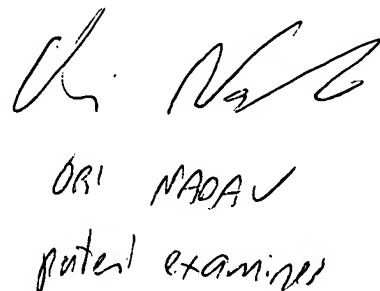 Ori Na
ORI NADAV
patent examiner